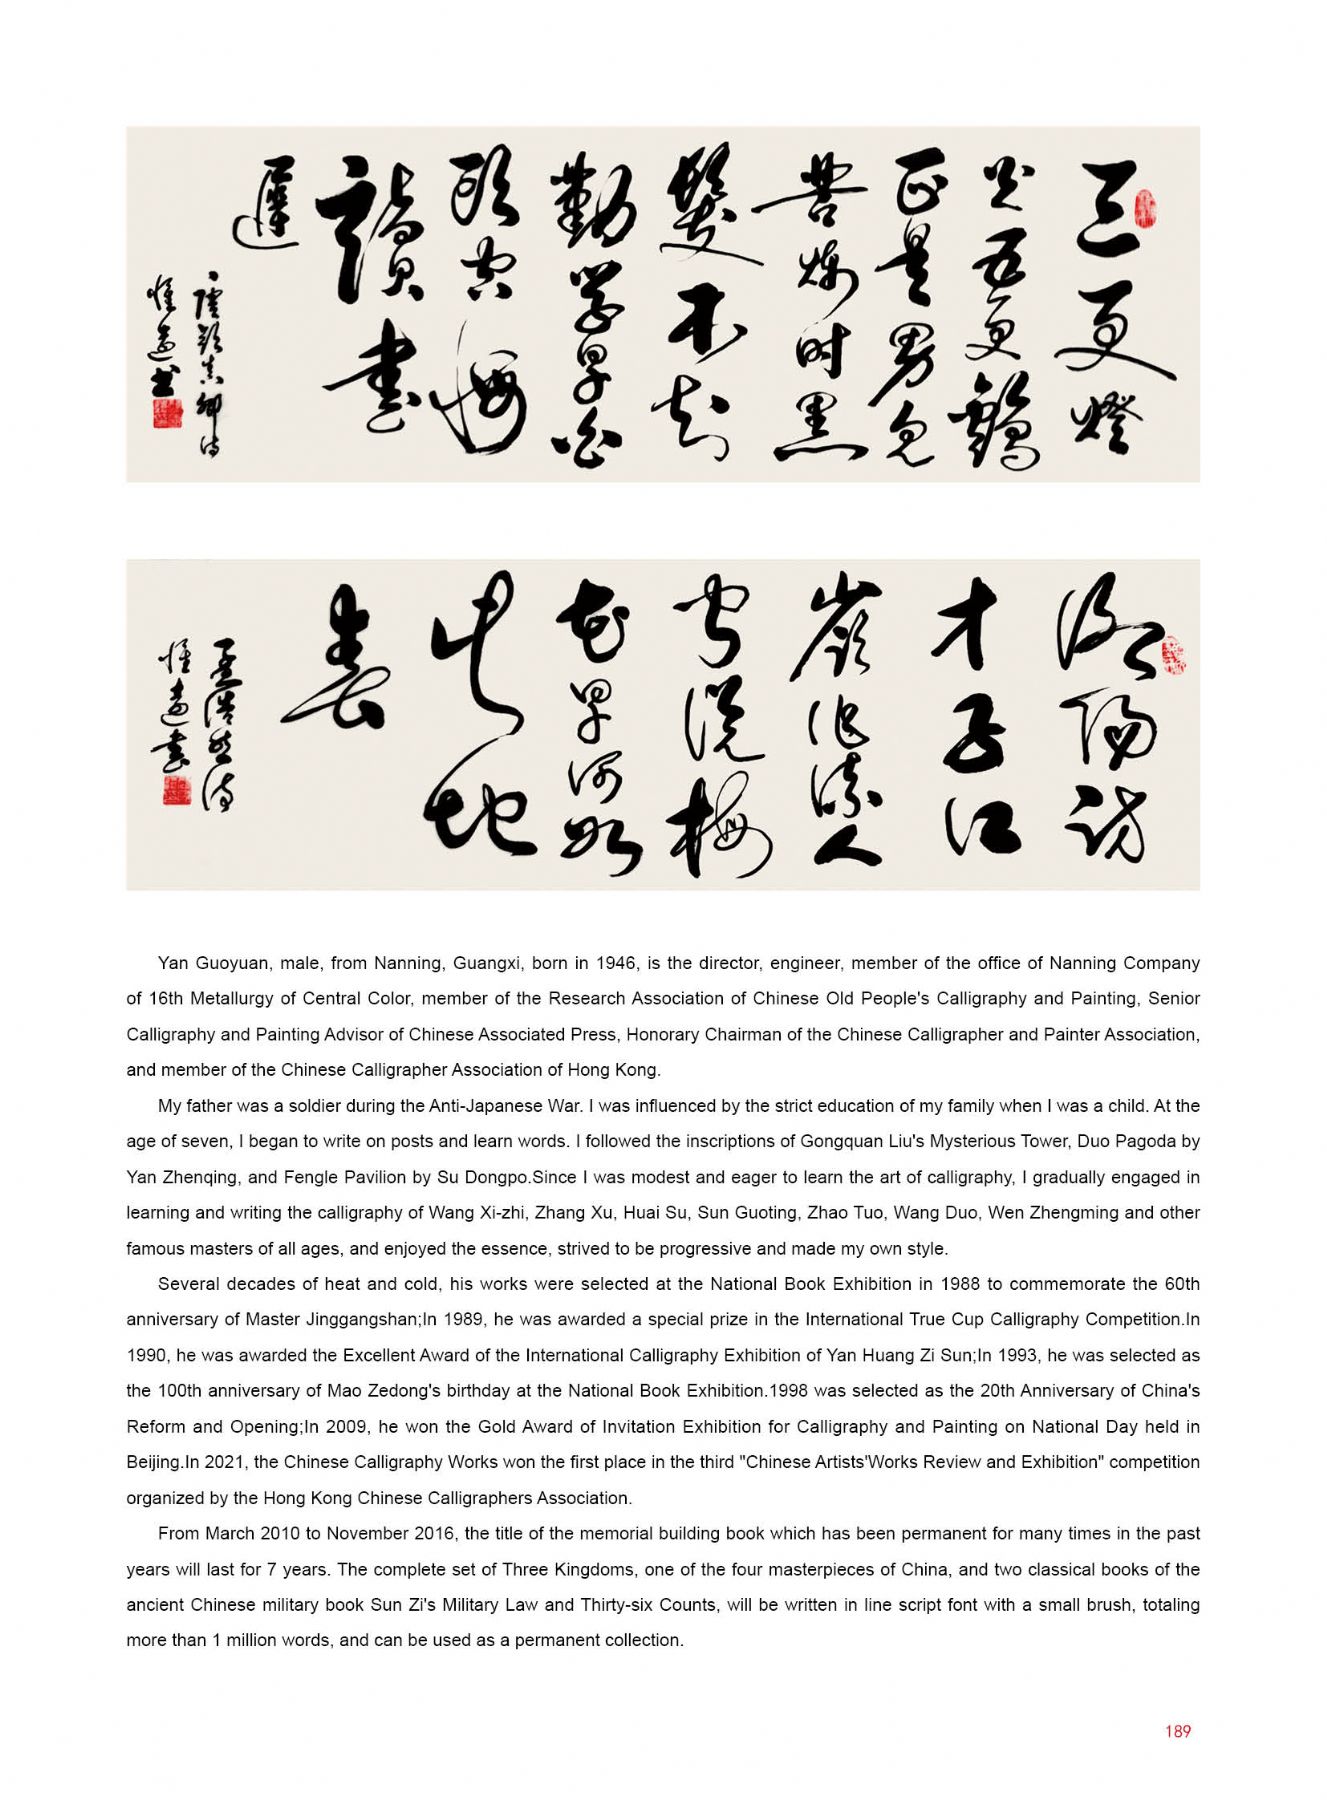 三更燈
火五更鷄
正是男兒
苦煉时黑
髮不知
勤学早白
頭方悔
讀書
遲
唐顔真卿诗
惟遠书
洛陽訪
才子江
嶺作流人
聞説梅
花早何如
此地
春
孟浩然诗
惟遠書
Yan Guoyuan, male, from Nanning, Guangxi, born in 1946, is the director, engineer, member of the office of Nanning Company
of 16th Metallurgy of Central Color, member of the Research Association of Chinese Old People's Calligraphy and Painting, Senior
Calligraphy and Painting Advisor of Chinese Associated Press, Honorary Chairman of the Chinese Calligrapher and Painter Association,
and member of the Chinese Calligrapher Association of Hong Kong.
My father was a soldier during the Anti-Japanese War. I was influenced by the strict education of my family when I was a child. At the
age of seven, I began to write on posts and learn words. I followed the inscriptions of Gongquan Liu's Mysterious Tower, Duo Pagoda by
Yan Zhenqing, and Fengle Pavilion by Su Dongpo.Since I was modest and eager to learn the art of calligraphy, I gradually engaged in
learning and writing the calligraphy of Wang Xi-zhi, Zhang Xu, Huai Su, Sun Guoting, Zhao Tuo, Wang Duo, Wen Zhengming and other
famous masters of all ages, and enjoyed the essence, strived to be progressive and made my own style.
Several decades of heat and cold, his works were selected at the National Book Exhibition in 1988 to commemorate the 60th
anniversary of Master Jinggangshan;In 1989, he was awarded a special prize in the International True Cup Calligraphy Competition.In
1990, he was awarded the Excellent Award of the International Calligraphy Exhibition of Yan Huang Zi Sun;In 1993, he was selected as
the 100th anniversary of Mao Zedong's birthday at the National Book Exhibition.1998 was selected as the 20th Anniversary of China's
Reform and Opening;In 2009, he won the Gold Award of Invitation Exhibition for Calligraphy and Painting on National Day held in
Beijing.In 2021, the Chinese Calligraphy Works won the first place in the third "Chinese Artists'Works Review and Exhibition" competition
organized by the Hong Kong Chinese Calligraphers Association.
From March 2010 to November 2016, the title of the memorial building book which has been permanent for many times in the past
years will last for 7 years. The complete set of Three Kingdoms, one of the four masterpieces of China, and two classical books of the
ancient Chinese military book Sun Zi's Military Law and Thirty-six Counts, will be written in line script font with a small brush, totaling
more than 1 million words, and can be used as a permanent collection.
189